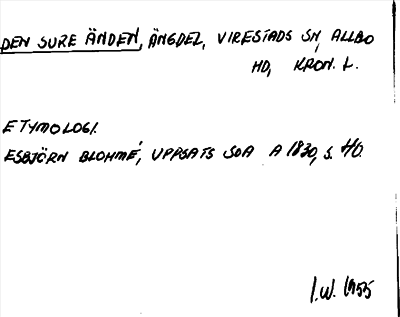 DEN SURE ÄNDEN, ÄNGDEL, VIRESTADS SN, ALLBO
HD, KRON. L.
ETYMOLOGI.
ESBJÖRN BLOHMÉ, UPPSATS SOA A 1830, S. 40.
I.W. 1955